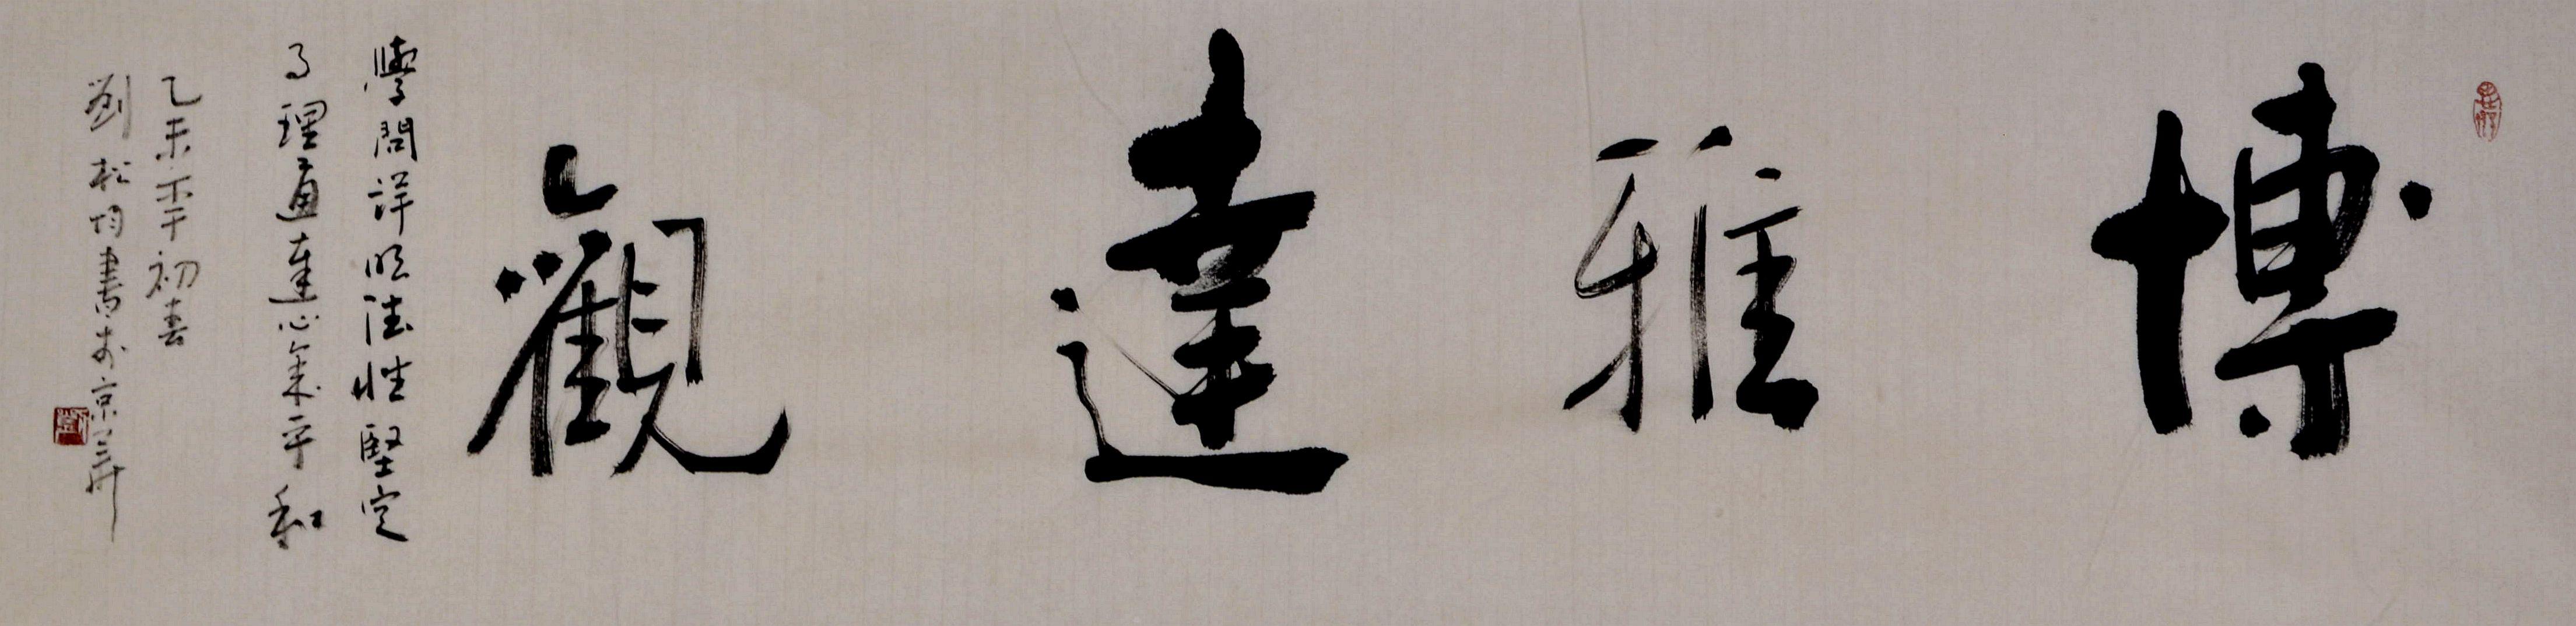 博雅達觀
學問詳明德性堅定
事理通達心氣平和
乙未年初春
劉松均書於京華